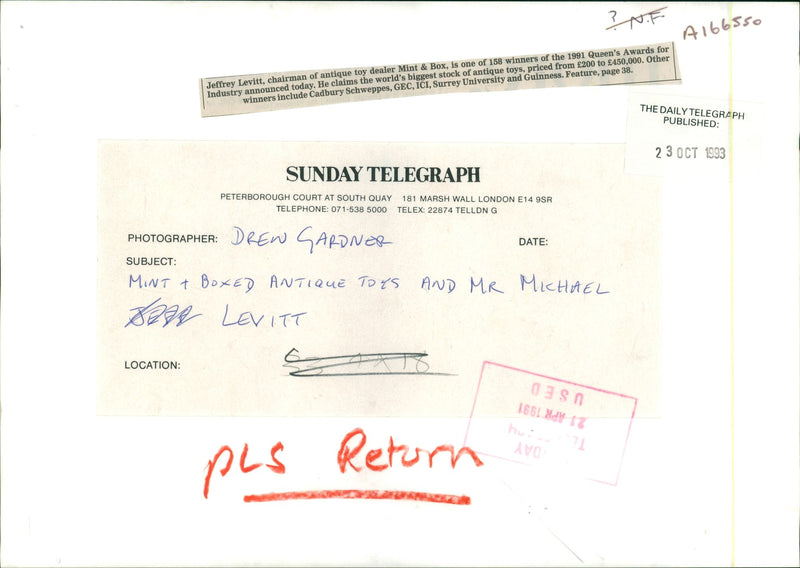 ? N.F.
A166550
Jeffrey Levitt, chairman of antique toy dealer Mint & Box, is one of 158 winners of the 1991 Queen's Awards for
Industry announced today. He claims the world's biggest stock of antique toys, priced from £200 to £450,000. Other
winners include Cadbury Schweppes, GEC, ICI, Surrey University and Guinness. Feature, page 38.
THE DAILY TELEGRAPH
PUBLISHED:
23 OCT 1993
SUNDAY TELEGRAPH
PETERBOROUGH COURT AT SOUTH QUAY 181 MARSH WALL LONDON E14 9SR
TELEPHONE: 071-538 5000 TELEX: 22874 TELLDN G
PHOTOGRAPHER: DREW GARDNER DATE:
SUBJECT:
MINT + BOXED ANTIQUE TOYS AND MR MICHAEL
LEVITT
LOCATION:
USED
21 APR 1991
DAY
PLS Return